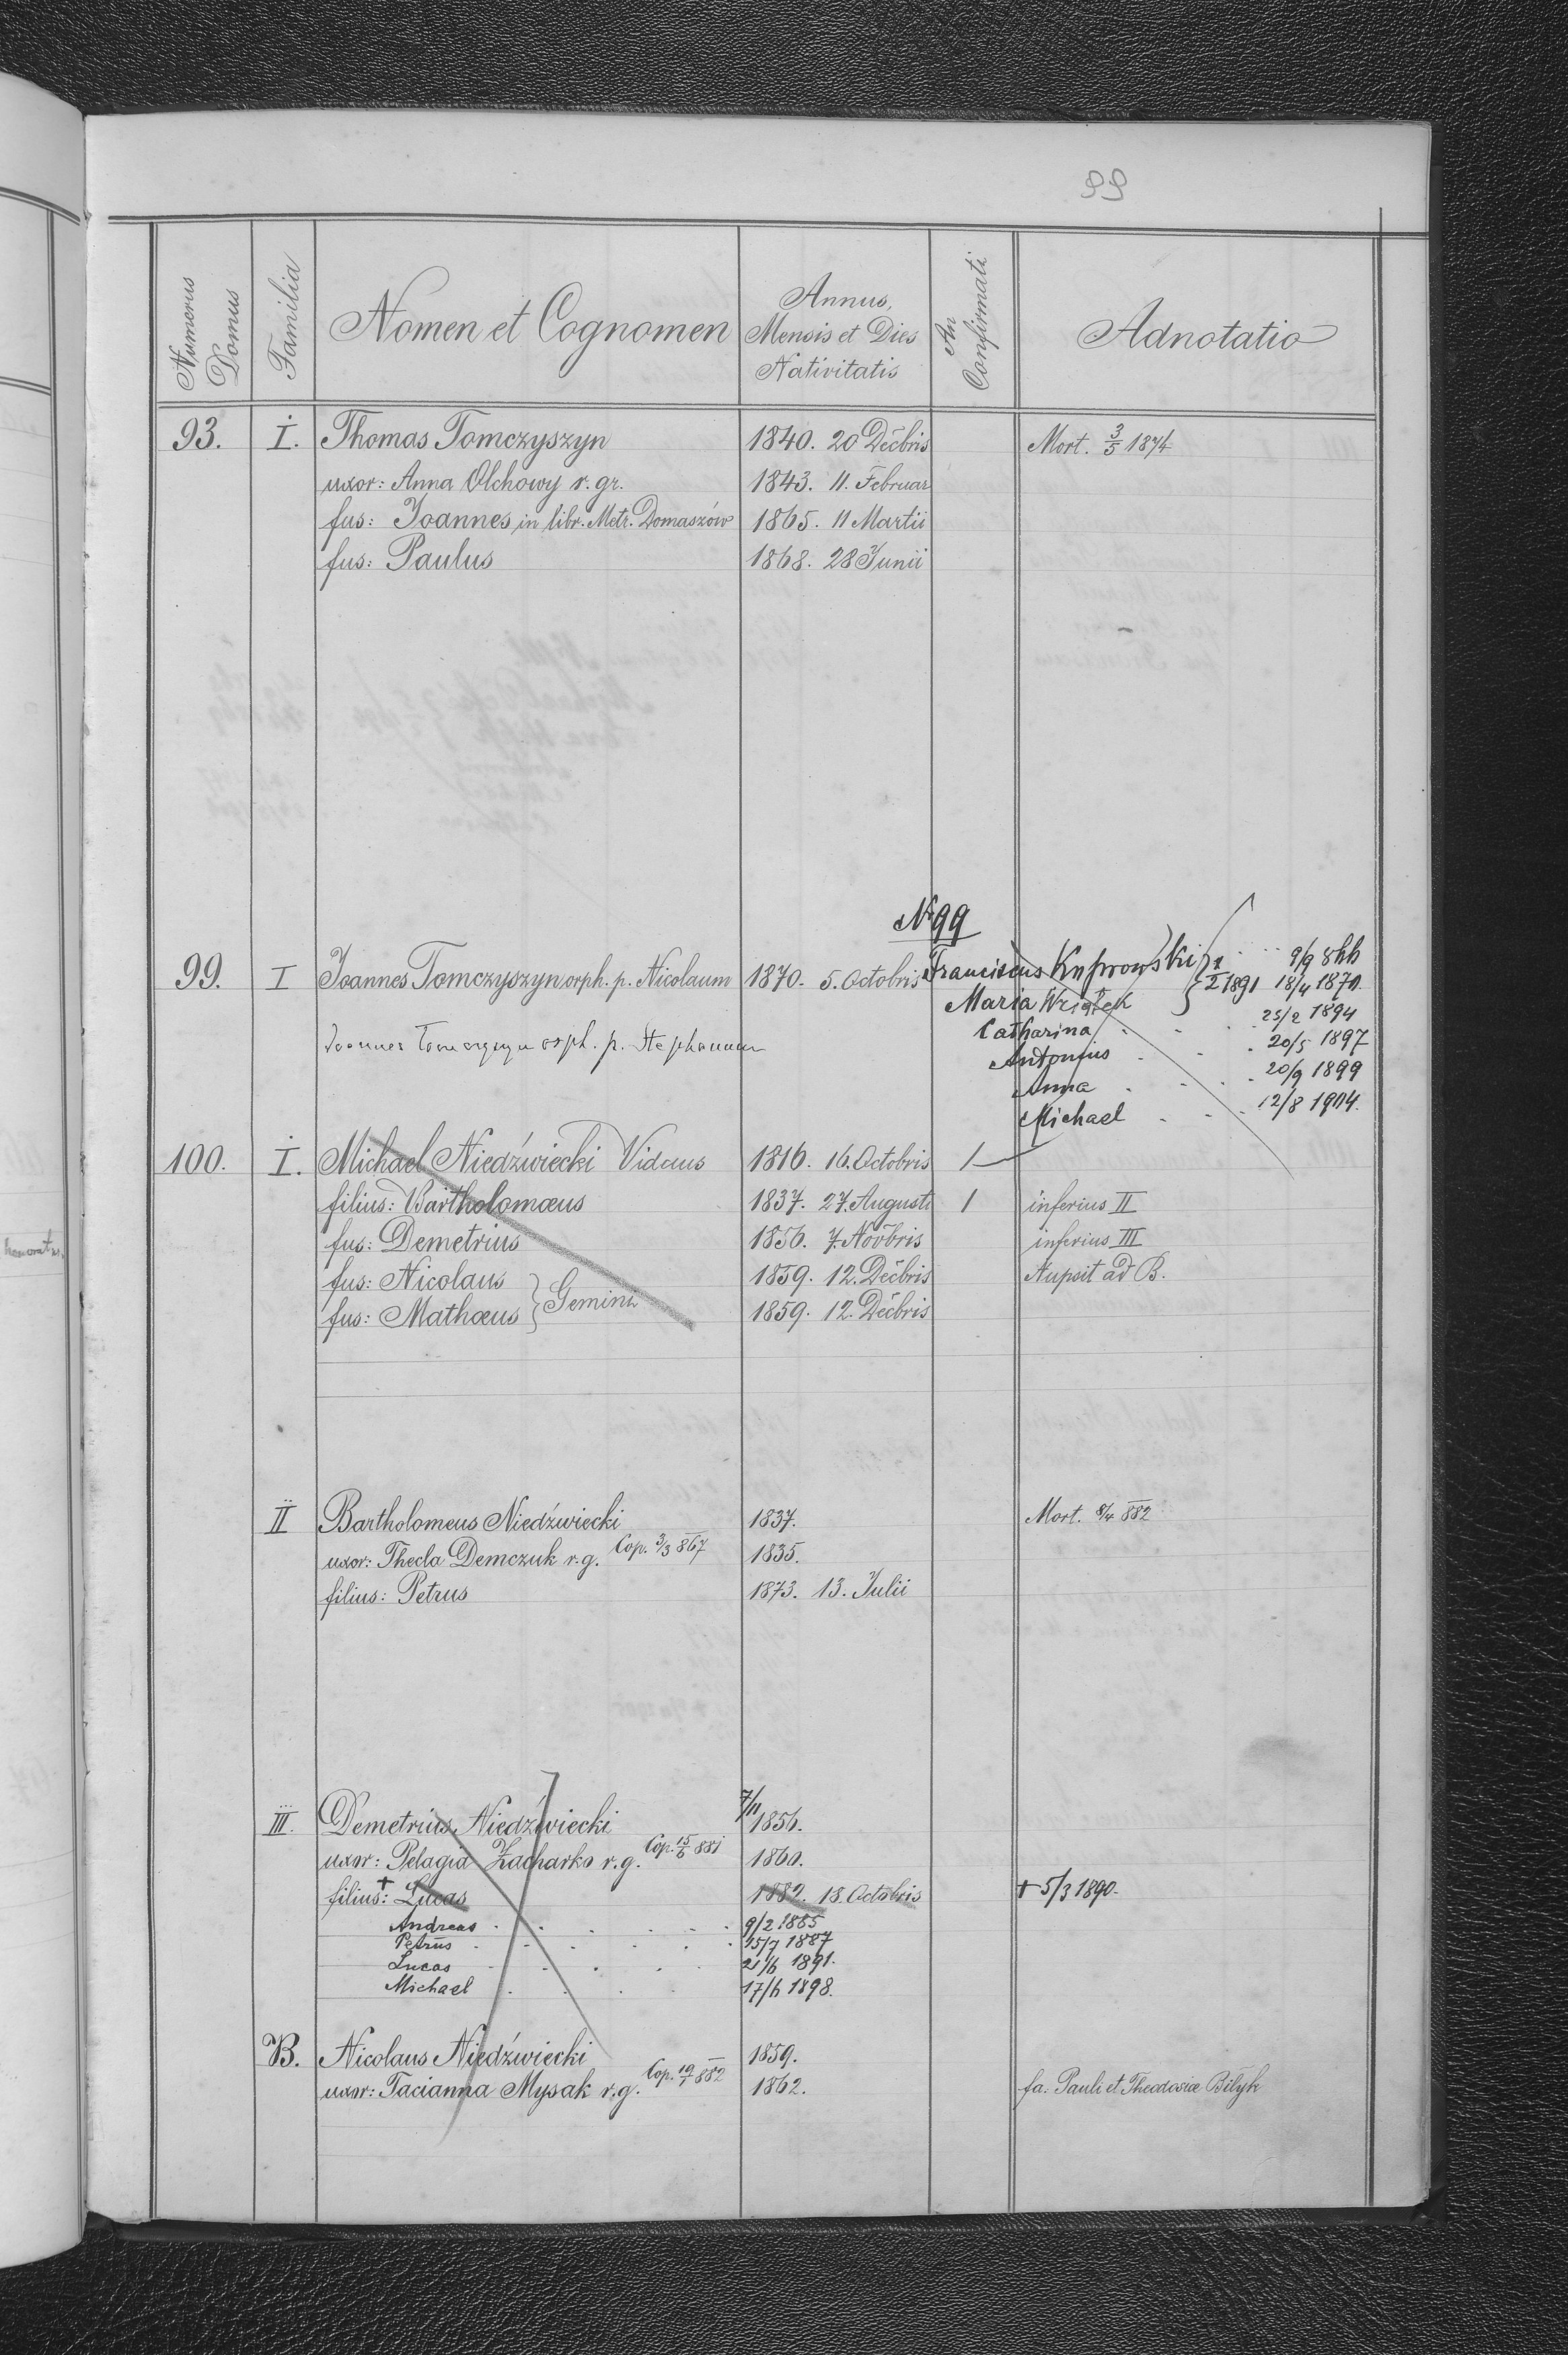 99
Numerus Domus | Familia | Nomen et Cognomen | Annus, Mensis et Dies Nativitatis | An Confirmati | Adnotatio
93. I. Thomas Tomczyszyn 1840. 20 Decbris Mort. 3/5 1874
uxor: Anna Olchowy r. gr. 1843. 11. Februar
fus: Joannes in libr. Metr. Domaszów 1865. 11 Martii
fus: Paulus 1868. 28 Junii
N 99
99. I Joannes Tomczyszyn orph. p. Nicolaum 1870. 5. Octobris
Joannes Tomczyszyn orph. p. Stephanum
Franciscus 9/9 866
Maria Wziątek 1/2 1891 18/4 1870.
Catharina 25/2 1894
Antonius 20/5 1897
Anna 20/9 1899
Michael 12/8 1904.
100. I. Michael Niedźwiecki Viduus 1816. 16. Octobris 1
filius: Bartholomæus 1837. 27. Augusti 1 inferius II
fus: Demetrius 1856. 7. Novbris inferius III
fus: Nicolaus } Gemini 1859. 12. Decbris Nupsit ad B.
fus: Mathæus 1859. 12. Decbris
II Bartholomeus Niedźwiecki 1837. Mort. 8/4 882
uxor: Thecla Demczuk r. g. Cop. 3/3 867 1835.
filius: Petrus 1873. 13. Julii
III. Demetrius Niedźwiecki 7/11 1856.
uxor: Pelagia Zacharko r. g. Cop. 15/6 881 1860.
filius: + Lucas 1882. 18. Octobris + 5/3 1890.
Andreas 9/2 1885
Petrus 15/7 1887
Lucas 21/6 1891.
Michael 17/6 1898.
B. Nicolaus Niedźwiecki 1859.
uxor: Tacianna Mysak r. g. Cop. 19/1 882 1862. fa. Pauli et Theodosiæ Bilyk